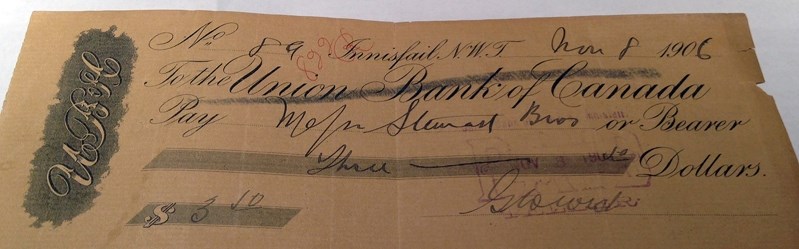 No 89 Innisfail, N.W.T. Nov 8 1906
To the Union Bank of Canada
Pay Messrs Stewart Bros or Bearer
Three 10 Dollars.
$ 3 10